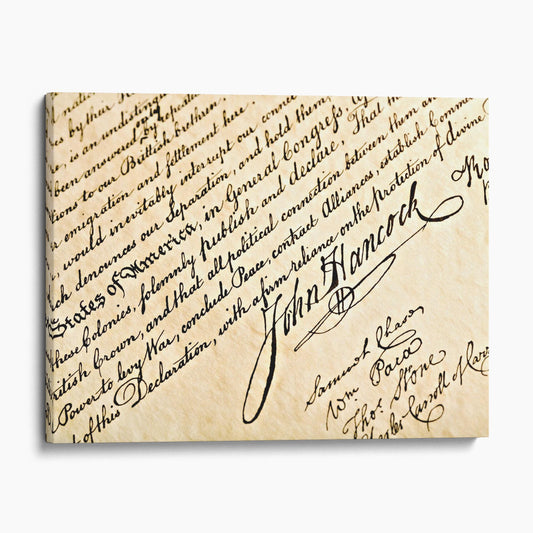 by their
is an undisting
been answered by repeated
tions to our Brittish brethren.
emigration and settlement here
would inevitably interrupt our conne
which denounces our Separation, and hold them
States of America, in General Congress,
these Colonies, solemnly publish and declare, That
British Crown, and that all political connection between them an
Power to levy War, conclude Peace, contract Alliances, establish Comme
of this Declaration, with a firm reliance on the protection of divine
John Hancock
Samuel Chase
Wm Paca
Thos. Stone
Charles Carroll of Carro